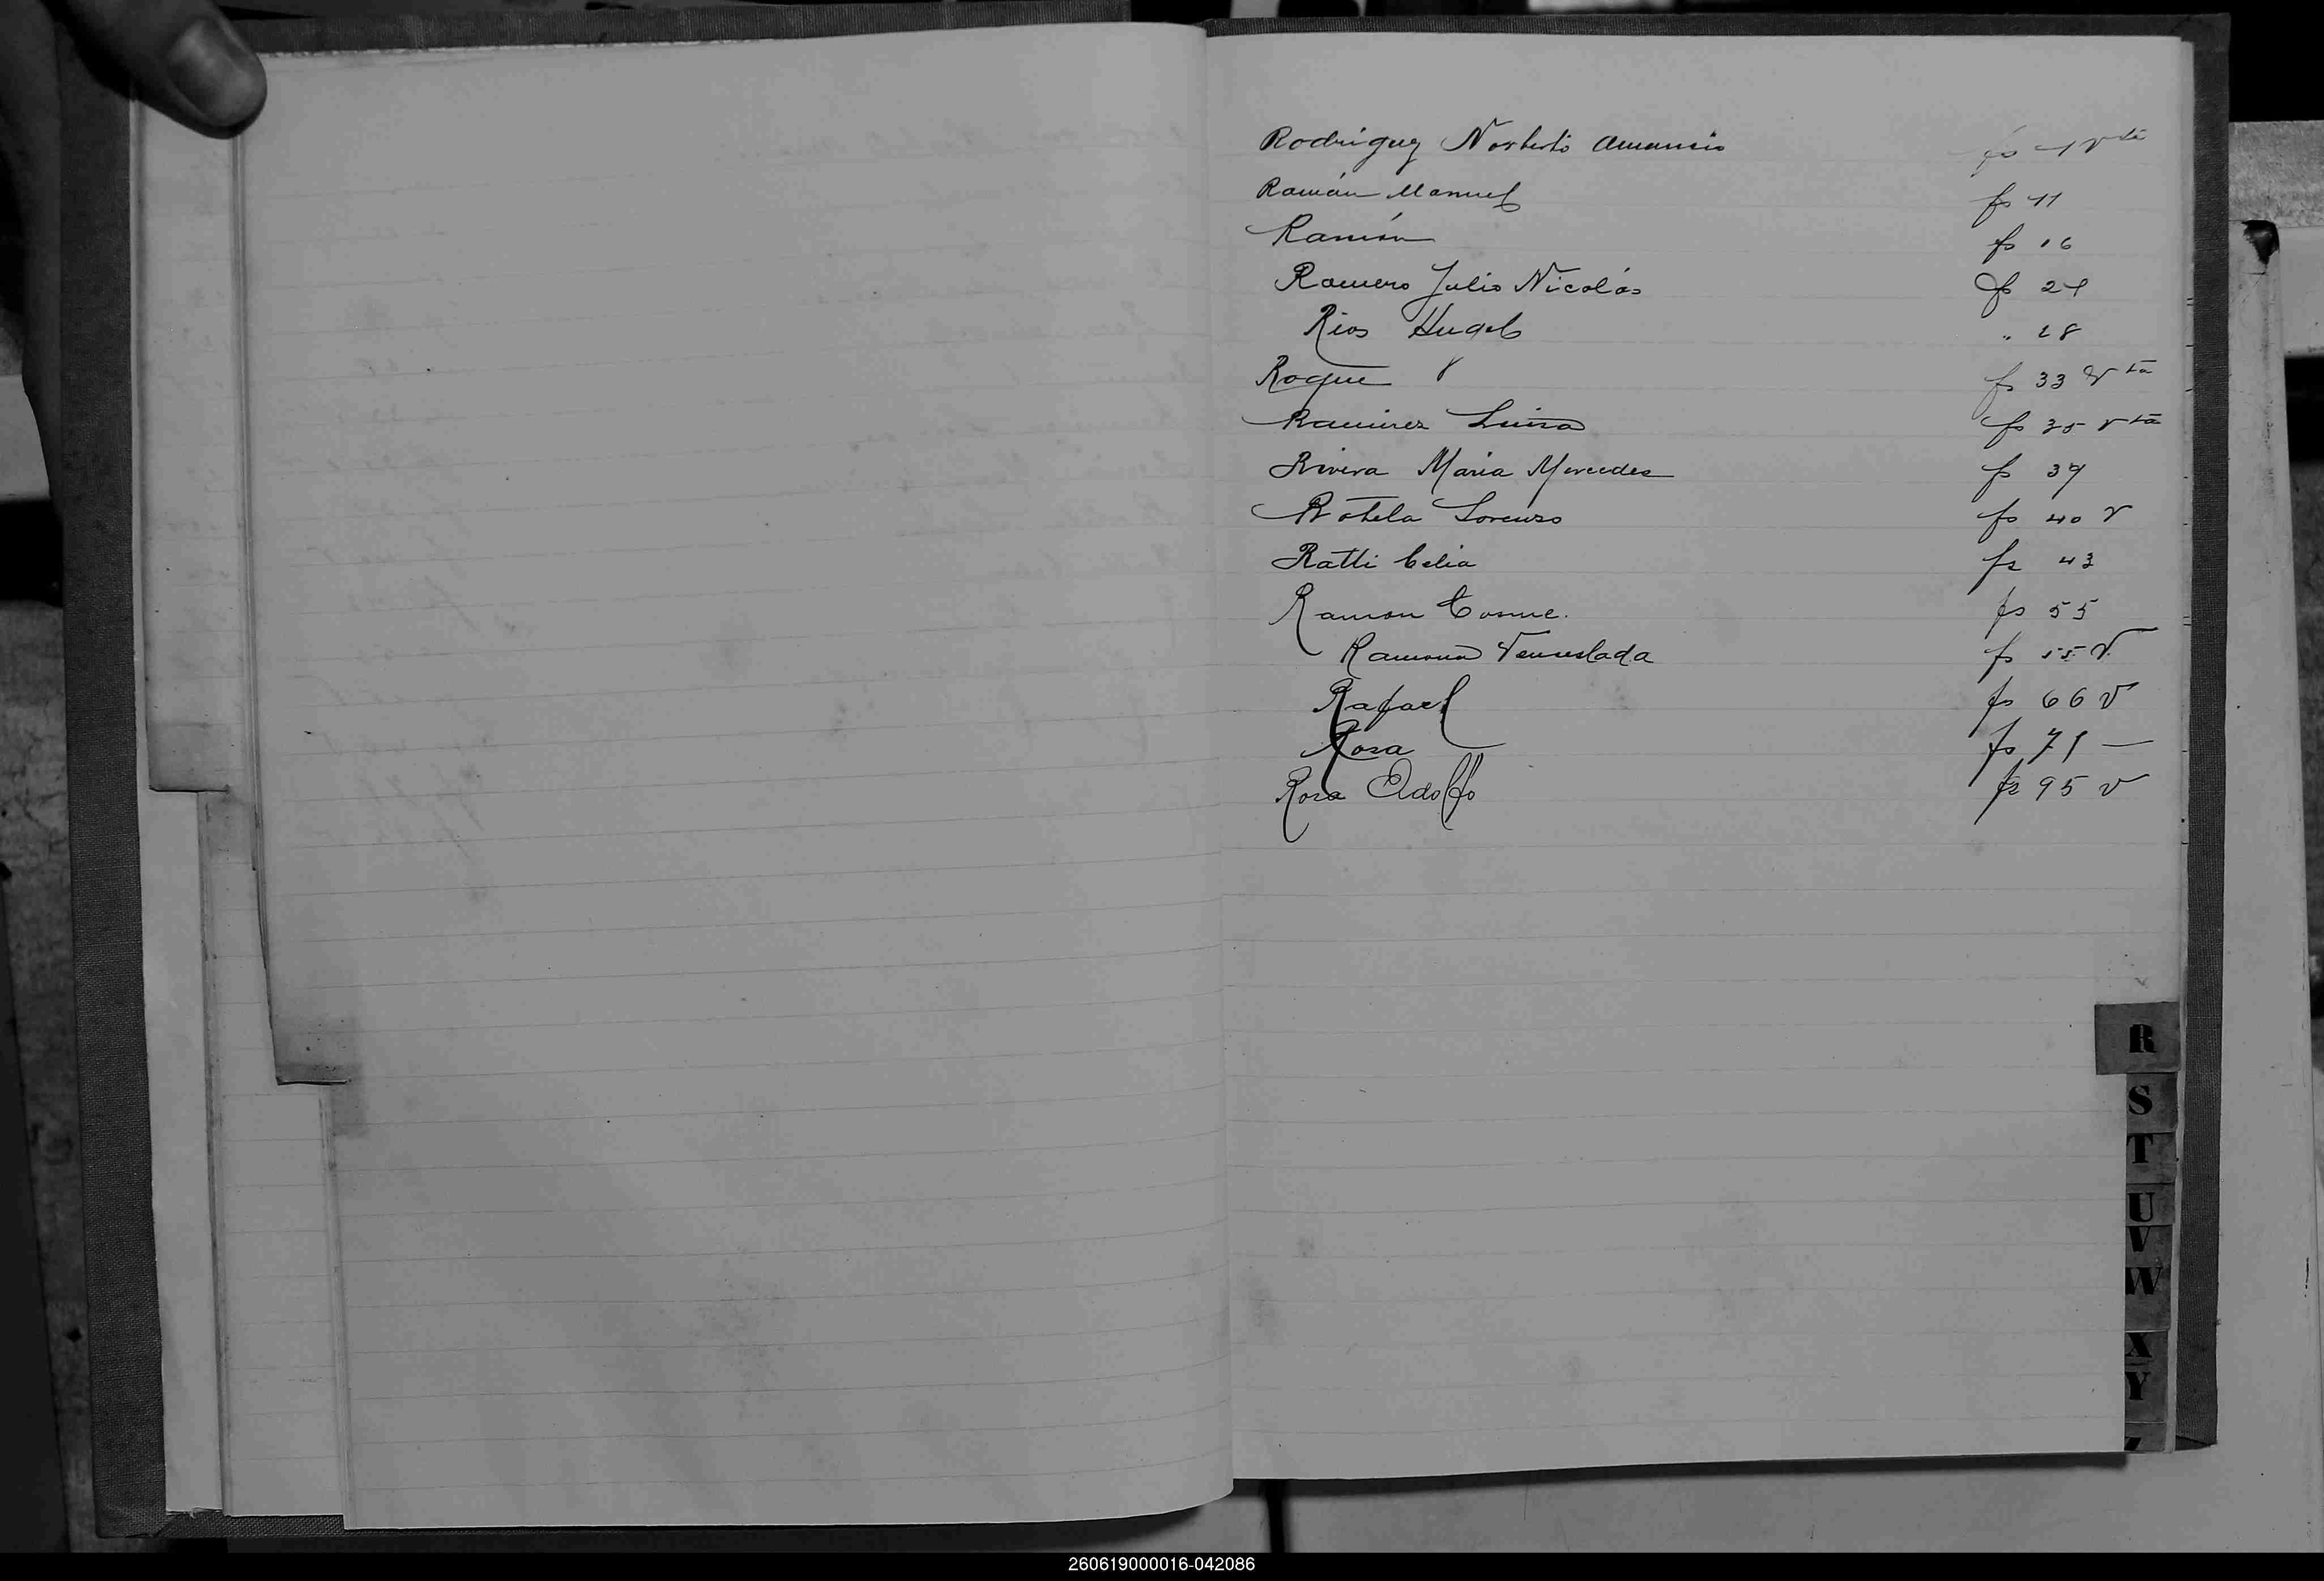 Rodriguez Norberto Amancio fs 1 vta
Ramón Manuel fs 11
Ramón fs 16
Romero Julio Nicolás fs 24
Rios Hugo " 28
Roque fs 33 vta
Ramirez Luisa fs 35 vta
Rivera Maria Mercedes fs 37
Rotela Lorenzo fs 40 v
Ratti Celia fs 43
Ramon Cosme. fs 55
Ramona Venseslada fs 55 v
Rafael fs 66 v
Rosa fs 71 —
Rosa Adolfo fs 95 v
R
S
T
U
V
W
X
Y
Z
260619000016-042086